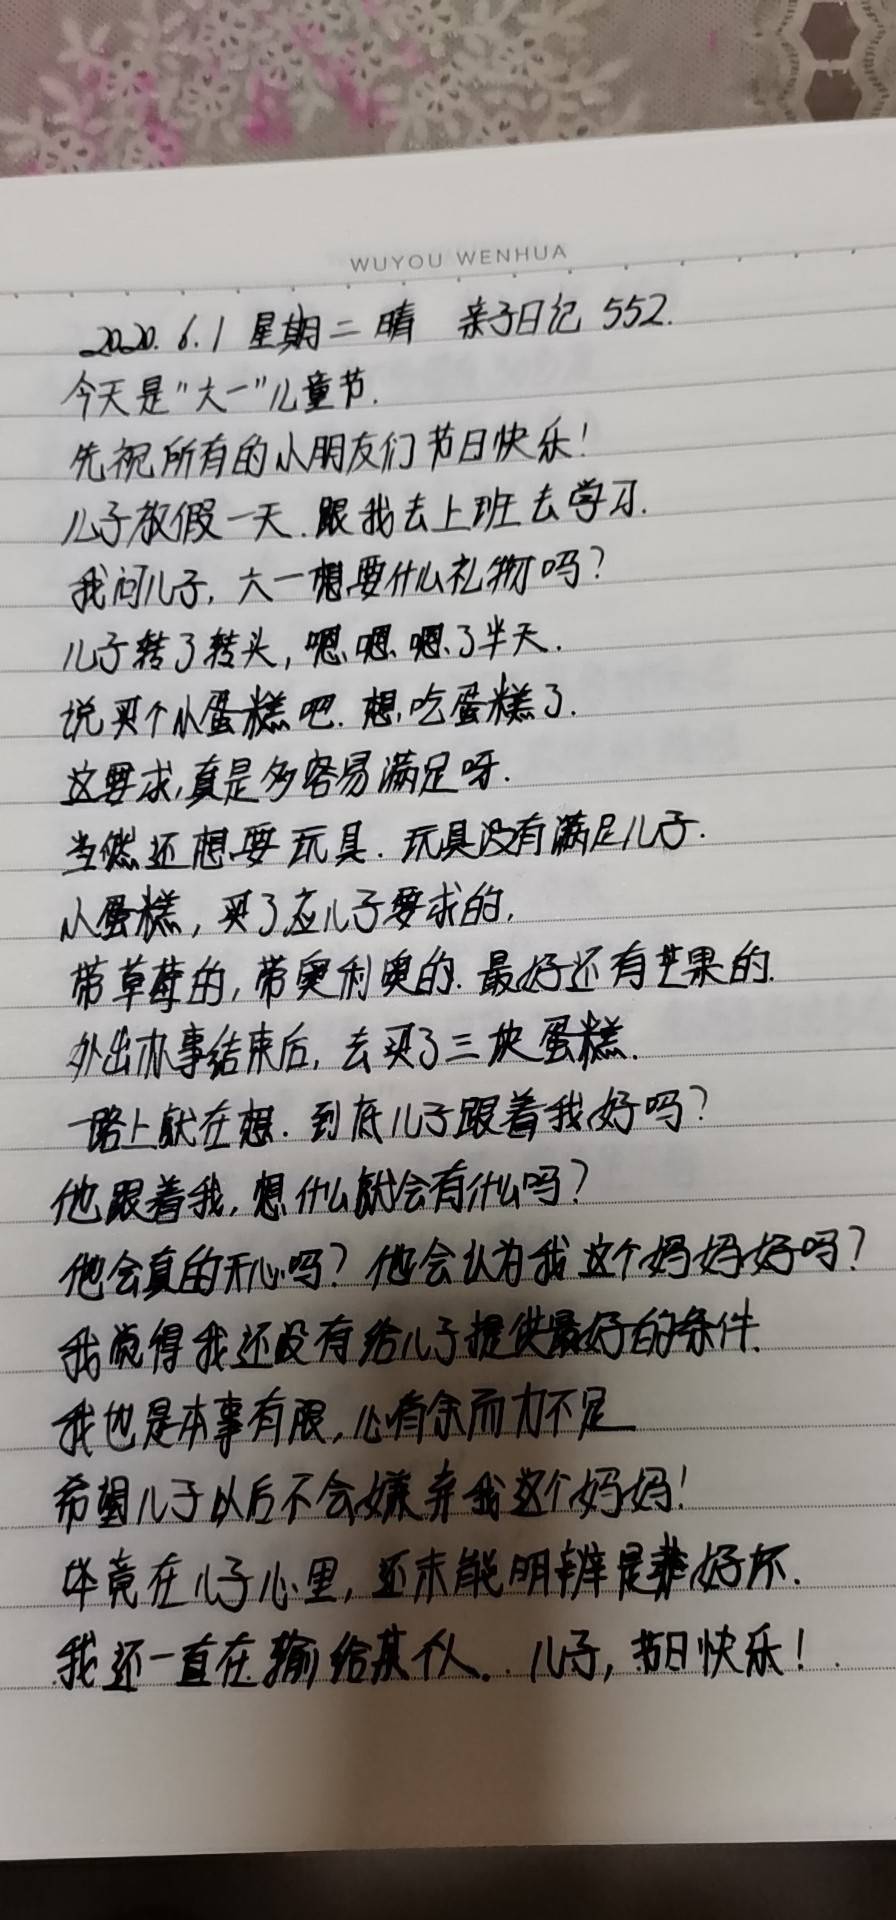 WUYOU WENHUA
2020.6.1 星期二 晴 亲子日记 552.
今天是"大一"儿童节.
先祝所有的小朋友们节日快乐!
儿子放假一天.跟我去上班去学习.
我问儿子,大一想要什么礼物吗?
儿子转了转头,嗯、嗯、嗯、了半天.
说买个小蛋糕吧.想吃蛋糕了.
这要求,真是多容易满足呀.
当然还想要玩具.玩具没有满足儿子.
小蛋糕,买了应儿子要求的,
带草莓的,带奥利奥的.最好还有芒果的.
外出办事结束后,去买了三块蛋糕.
一路上就在想.到底儿子跟着我好吗?
他跟着我,想什么就会有什么吗?
他会真的开心吗?他会认为我这个妈妈好吗?
我觉得我还没有给儿子提供最好的条件.
我也是本事有限,心有余而力不足
希望儿子以后不会嫌弃我这个妈妈!
毕竟在儿子心里,还未能明辨是非好坏.
我还一直在输给某个人..儿子,节日快乐!.